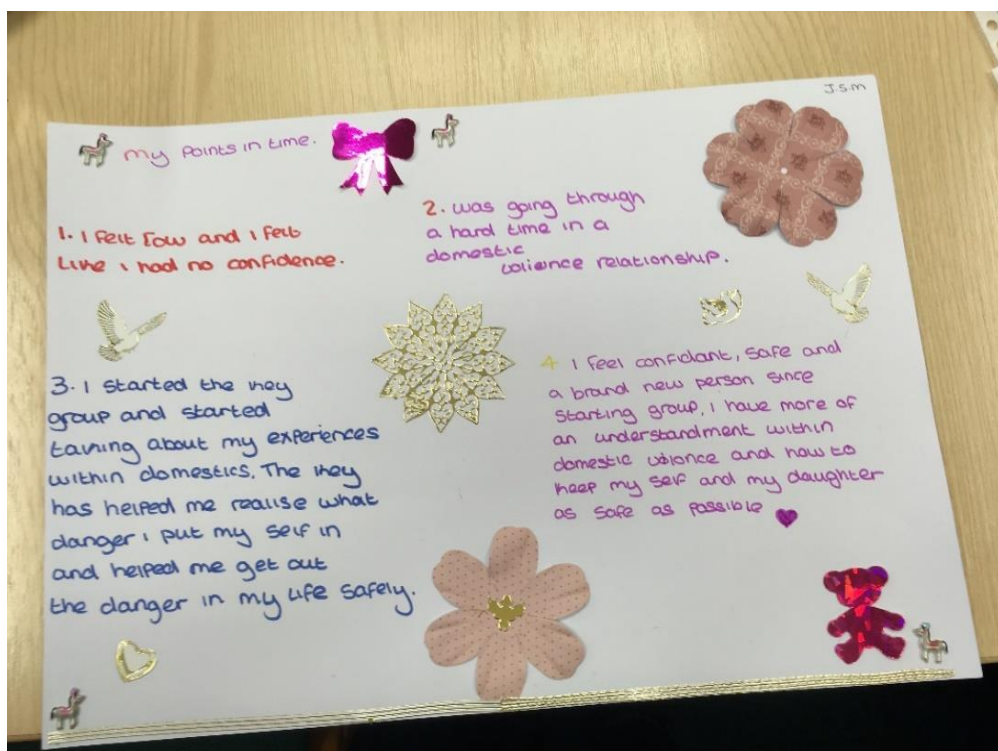 J.S.M
My Points in time.
1. I felt low and I felt
Like I had no confidence.
2. was going through
a hard time in a
domestic
volience relationship.
3. I started the key
group and started
talking about my experiences
within domestics. The key
has helped me realise what
danger i put my self in
and helped me get out
the danger in my life safely.
4 I feel confidant, safe and
a brand new person since
starting group. I have more of
an understandment within
domestic volience and how to
keep my self and my daughter
as safe as possible